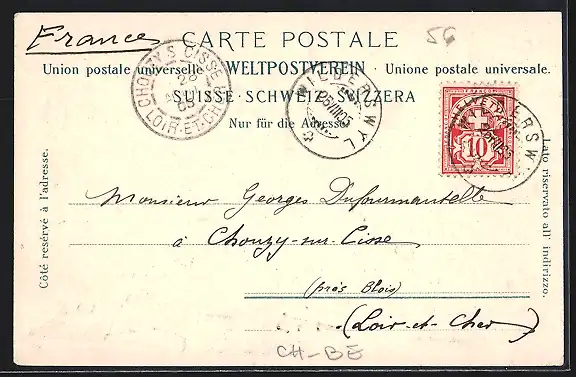 France
CARTE POSTALE
56
Union postale universelle · WELTPOSTVEREIN · Unione postale universale.
SUISSE · SCHWEIZ · SVIZZERA
Nur für die Adresse
CHOUZY S CISSE
LOIR-ET-CHER
WILDERSWYL
25 VIII 05
HELVETIA
10
Côté resérvé à l'adresse.
Lato riservato all' indirizzo.
Monsieur Georges Dufourmantelle
à Chouzy-sur-Cisse
(près Blois)
(Loir-et-Cher)
CH-BE